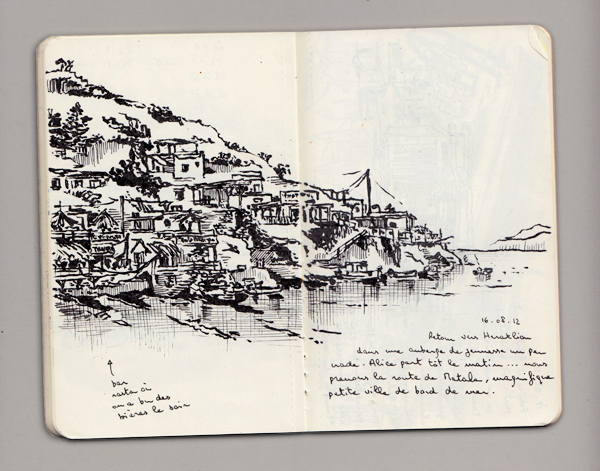 16.08.12
Retour vers Heraklion
dans une auberge de jeunesse un peu
nade. Alice part tôt le matin... nous
prenons la route de Matala, magnifique
petite ville de bord de mer.
bar
rasta où
on a bu des
bières le soir